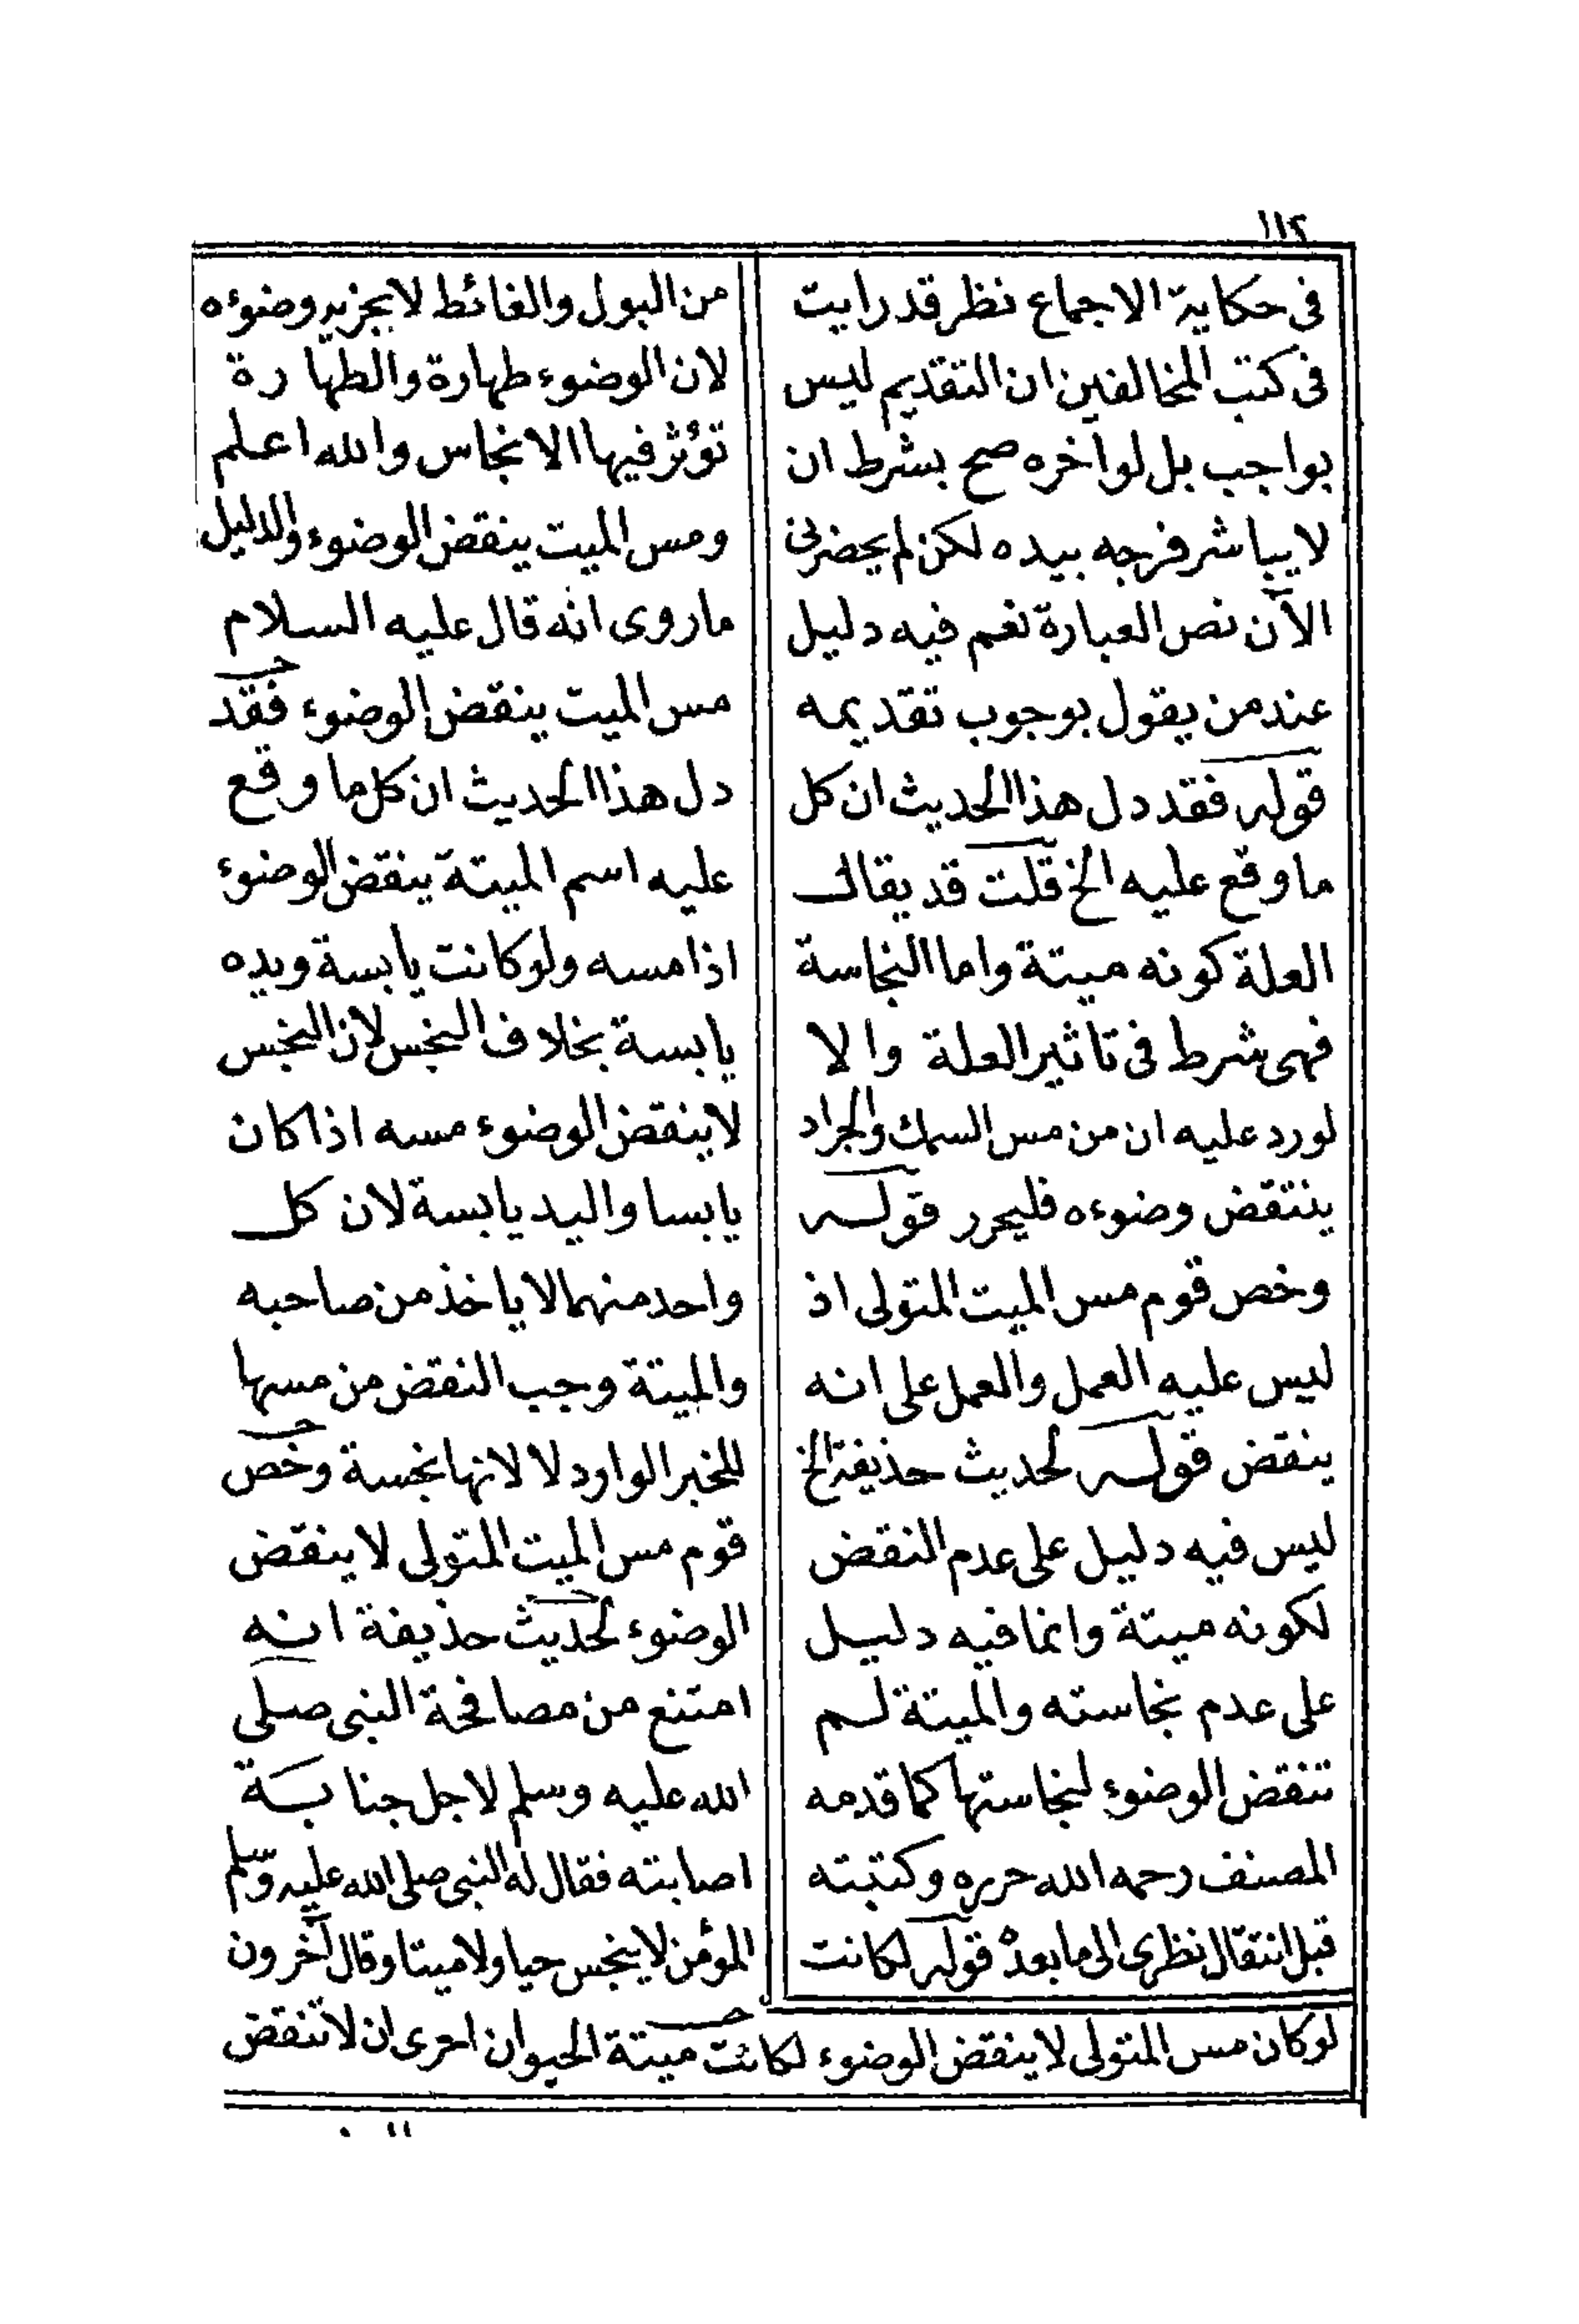 ١١٢
فى حكاية الاجماع نظر قد رايت
فى كتب المخالفين ان التقديم ليس
بواجب بل لو اخره صح بشرط ان
لا يباشر فرجه بيده لكن لم يحضرنى
الآن نص العبارة نعم فيه دليل
عند من يقول بوجوب تقديمه
قوله فقد دل هذا الحديث ان كل
ما وقع عليه الخ قلت قد يقال
العلة كونه ميتة واما النجاسة
فهى شرط فى تاثير العلة والا
لورد عليه ان من مس السمك والجراد
ينتقض وضوءه فليحرر قوله
وخص قوم مس الميت المتولى اذ
ليس عليه العمل والعمل على انه
ينقض قوله لحديث حذيفة الخ
ليس فيه دليل على عدم النقض
لكونه ميتة وانما فيه دليل
على عدم نجاسته والميتة لم
تنقض الوضوء لنجاستها كما قدمه
المصنف رحمه الله حرره وكتبته
قبل انتقال نظرى الى ما بعده قوله لكانت
من البول والغائط لا يجزيه وضوءه
لان الوضوء طهارة والطهارة
تؤثر فيها الانجاس والله اعلم
ومس الميت ينقض الوضوء والدليل
ماروى انه قال عليه السلام
مس الميت ينقض الوضوء فقد
دل هذا الحديث ان كل ما وقع
عليه اسم الميتة ينقض الوضوء
اذا مسه ولو كانت يابسة ويده
يابسة بخلاف النجس لان النجس
لا ينقض الوضوء مسه اذا كان
يابسا واليد يابسة لان كل
واحد منهما لا ياخذ من صاحبه
والميتة وجب النقض من مسها
للخبر الوارد لا لانها نجسة وخص
قوم مس الميت المتولى لا ينقض
الوضوء لحديث حذيفة انه
امتنع من مصافحة النبى صلى
الله عليه وسلم لاجل جنابة
اصابته فقال له النبى صلى الله عليه وسلم
المؤمن لا ينجس حيا ولا ميتا وقال آخرون
لو كان مس المتولى لا ينقض الوضوء لكانت ميتة الحيوان احرى ان لا تنقض